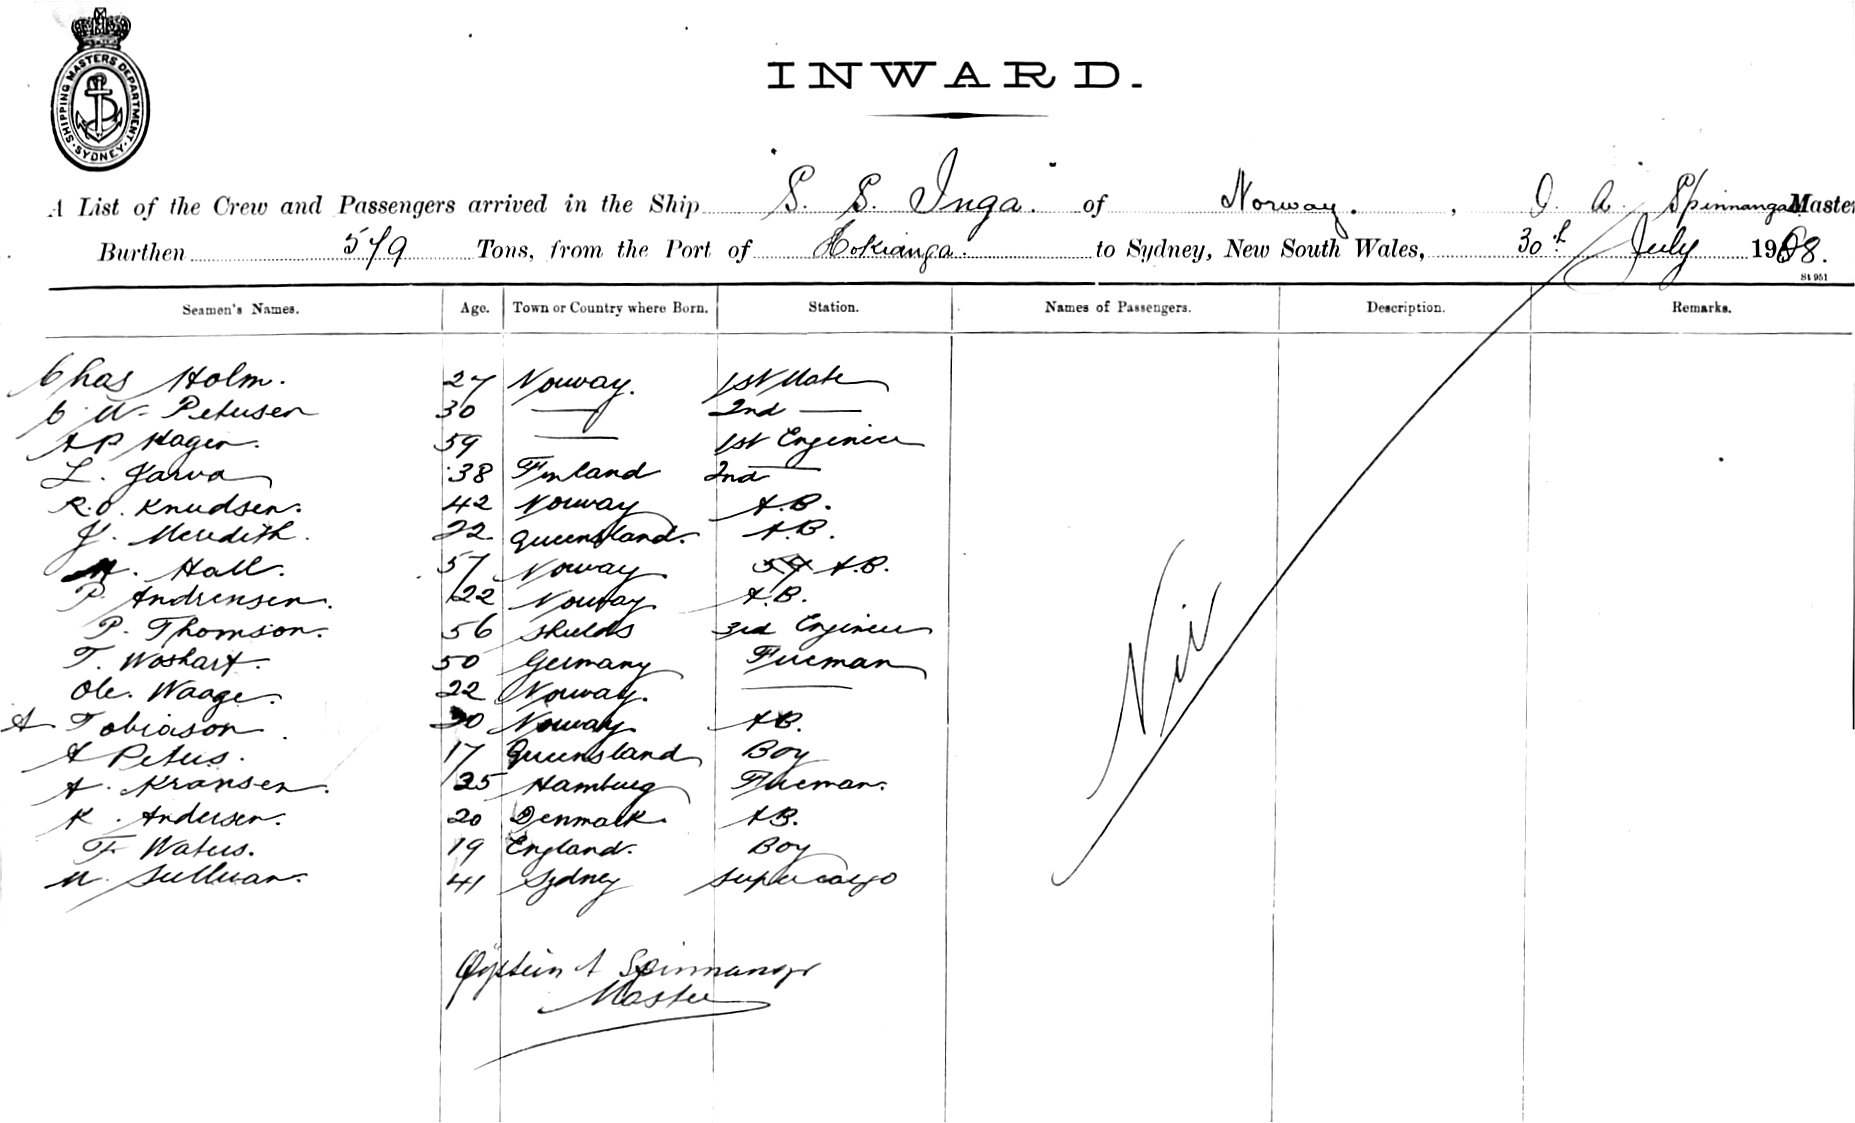 SHIPPING MASTERS DEPARTMENT. SYDNEY.
INWARD.
A List of the Crew and Passengers arrived in the Ship "S. S. Inga" of Norway. , O. A. Spinnanger Master
Burthen 579 Tons, from the Port of Hokianga. to Sydney, New South Wales, 30th July 1908.
St 951
Seamen's Names. Age. Town or Country where Born. Station. Names of Passengers. Description. Remarks.
Chas Holm. 27 Norway. 1st Mate
C. W. Petersen 30 — 2nd —
A P Hagen. 59 — 1st Engineer
L. Jarva 38 Finland 2nd —
R. O. Knudsen. 42 Norway A.B.
J. Meredith. 22 Queensland. A.B.
Hall. 57 Norway A.B.
P. Andrensen. 22 Norway. A.B.
P. Thomson. 56 Shields 3rd Engineer
T. Woshart. 50 Germany Fireman
Ole. Waage. 22 Norway. —
A Tobiason. 20 Norway AB.
A Peters. 17 Queensland Boy
A. Kransen. 25 Hamburg Fireman.
K. Andersen. 20 Denmark. AB.
F. Waters. 19 England. Boy
M. Sullivan. 41 Sydney Supercargo
Nil
Øystein A Spinnanger
Master